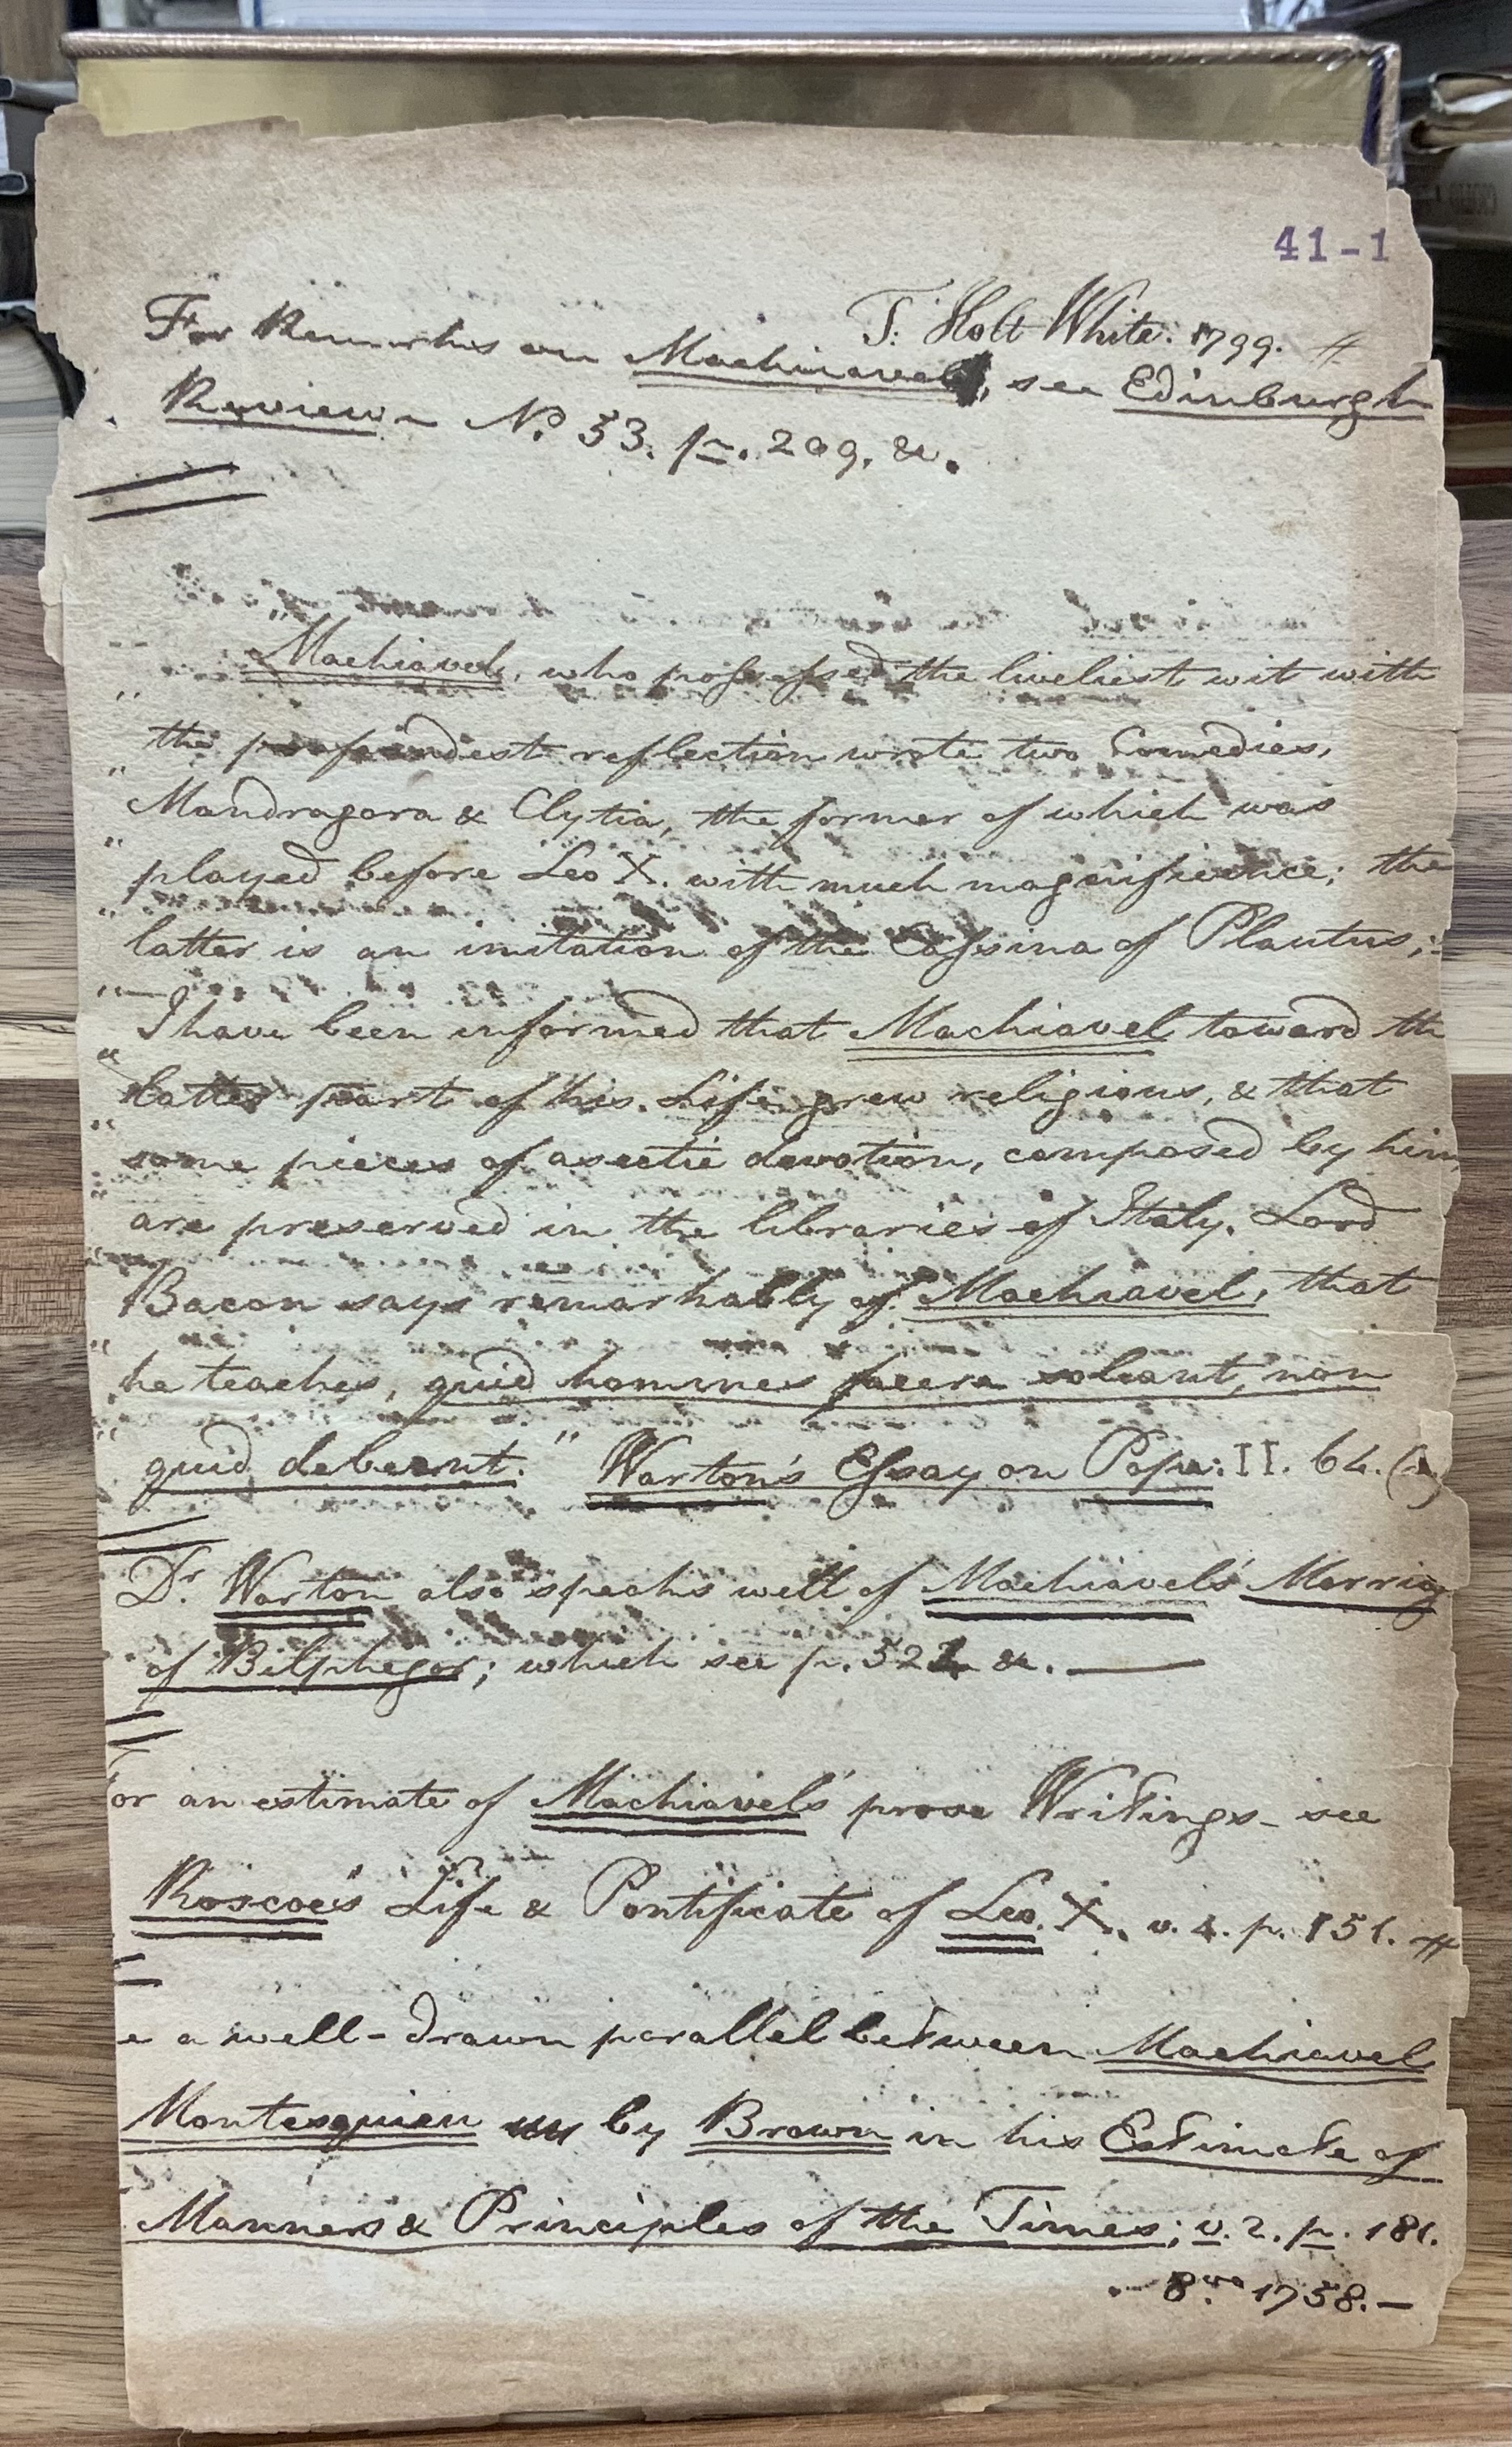 41-1
T: Holt White. 1799.
For Remarks on Machiavel, see Edinburgh
Review - No. 53. p. 209. &.
"Machiavel, who possessed the liveliest wit with
" the profoundest reflection wrote two Comedies,
" Mandragora & Clytia, the former of which was
" played before Leo X. with much magnificence; the
" latter is an imitation of the Cassina of Plautus;
" — I have been informed that Machiavel toward th
" latter part of his Life grew religious, & that
" some pieces of ascetic devotion, composed by him,
" are preserved in the libraries of Italy. Lord
" Bacon says remarkably of Machiavel, that
" he teaches, quid homines facere soleant, non
" quid debeant." Warton's Essay on Pope: II. 64.
Dr. Warton also speaks well of Machiavel's Marriag
of Bilphegor; which see p. 52 &. —
or an estimate of Machiavel's prose Writings - see
Roscoe's Life & Pontificate of Leo. X. v. 4. p. 151.
e a well-drawn parallel between Machiavel
Montesquieu by Brown in his Estimate of
Manners & Principles of the Times; v. 2. p. 181.
8vo. 1758. —